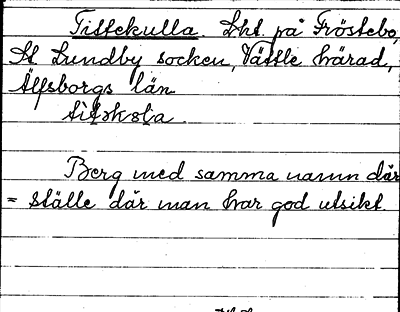 Tittekulla. Lht. på Fröstebo,
St Lundby socken, Vättle härad,
Älfsborgs län

Berg med samma namn där
= ställe där man har god utsikt.